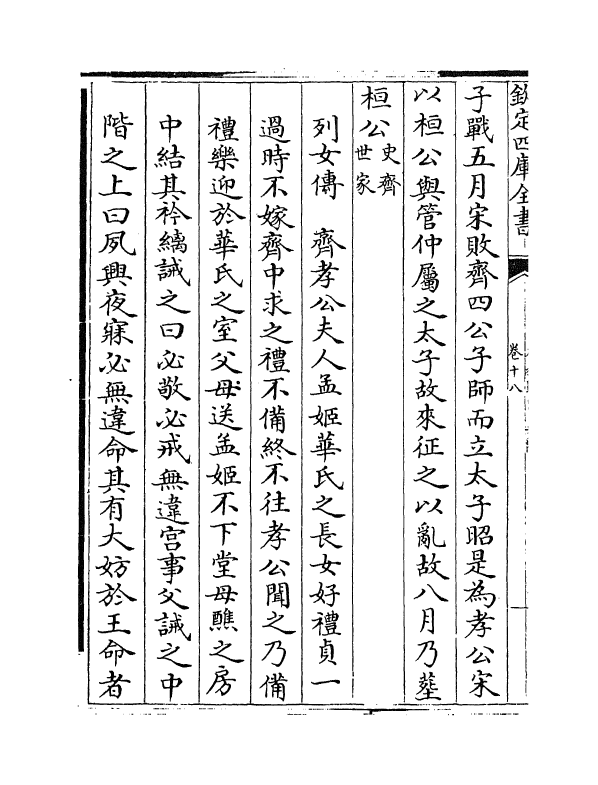 欽定四庫全書
卷十八
子戰五月宋敗齊四公子師而立太子昭是為孝公宋
以桓公與管仲屬之太子故來征之以亂故八月乃塟
桓公史齊世家
列女傳　齊孝公夫人孟姬華氏之長女好禮貞一
過時不嫁齊中求之禮不備終不往孝公聞之乃備
禮樂迎於華氏之室父母送孟姬不下堂母醮之房
中結其衿縭誡之曰必敬必戒無違宫事父誡之中
階之上曰夙興夜寐必無違命其有大妨於王命者